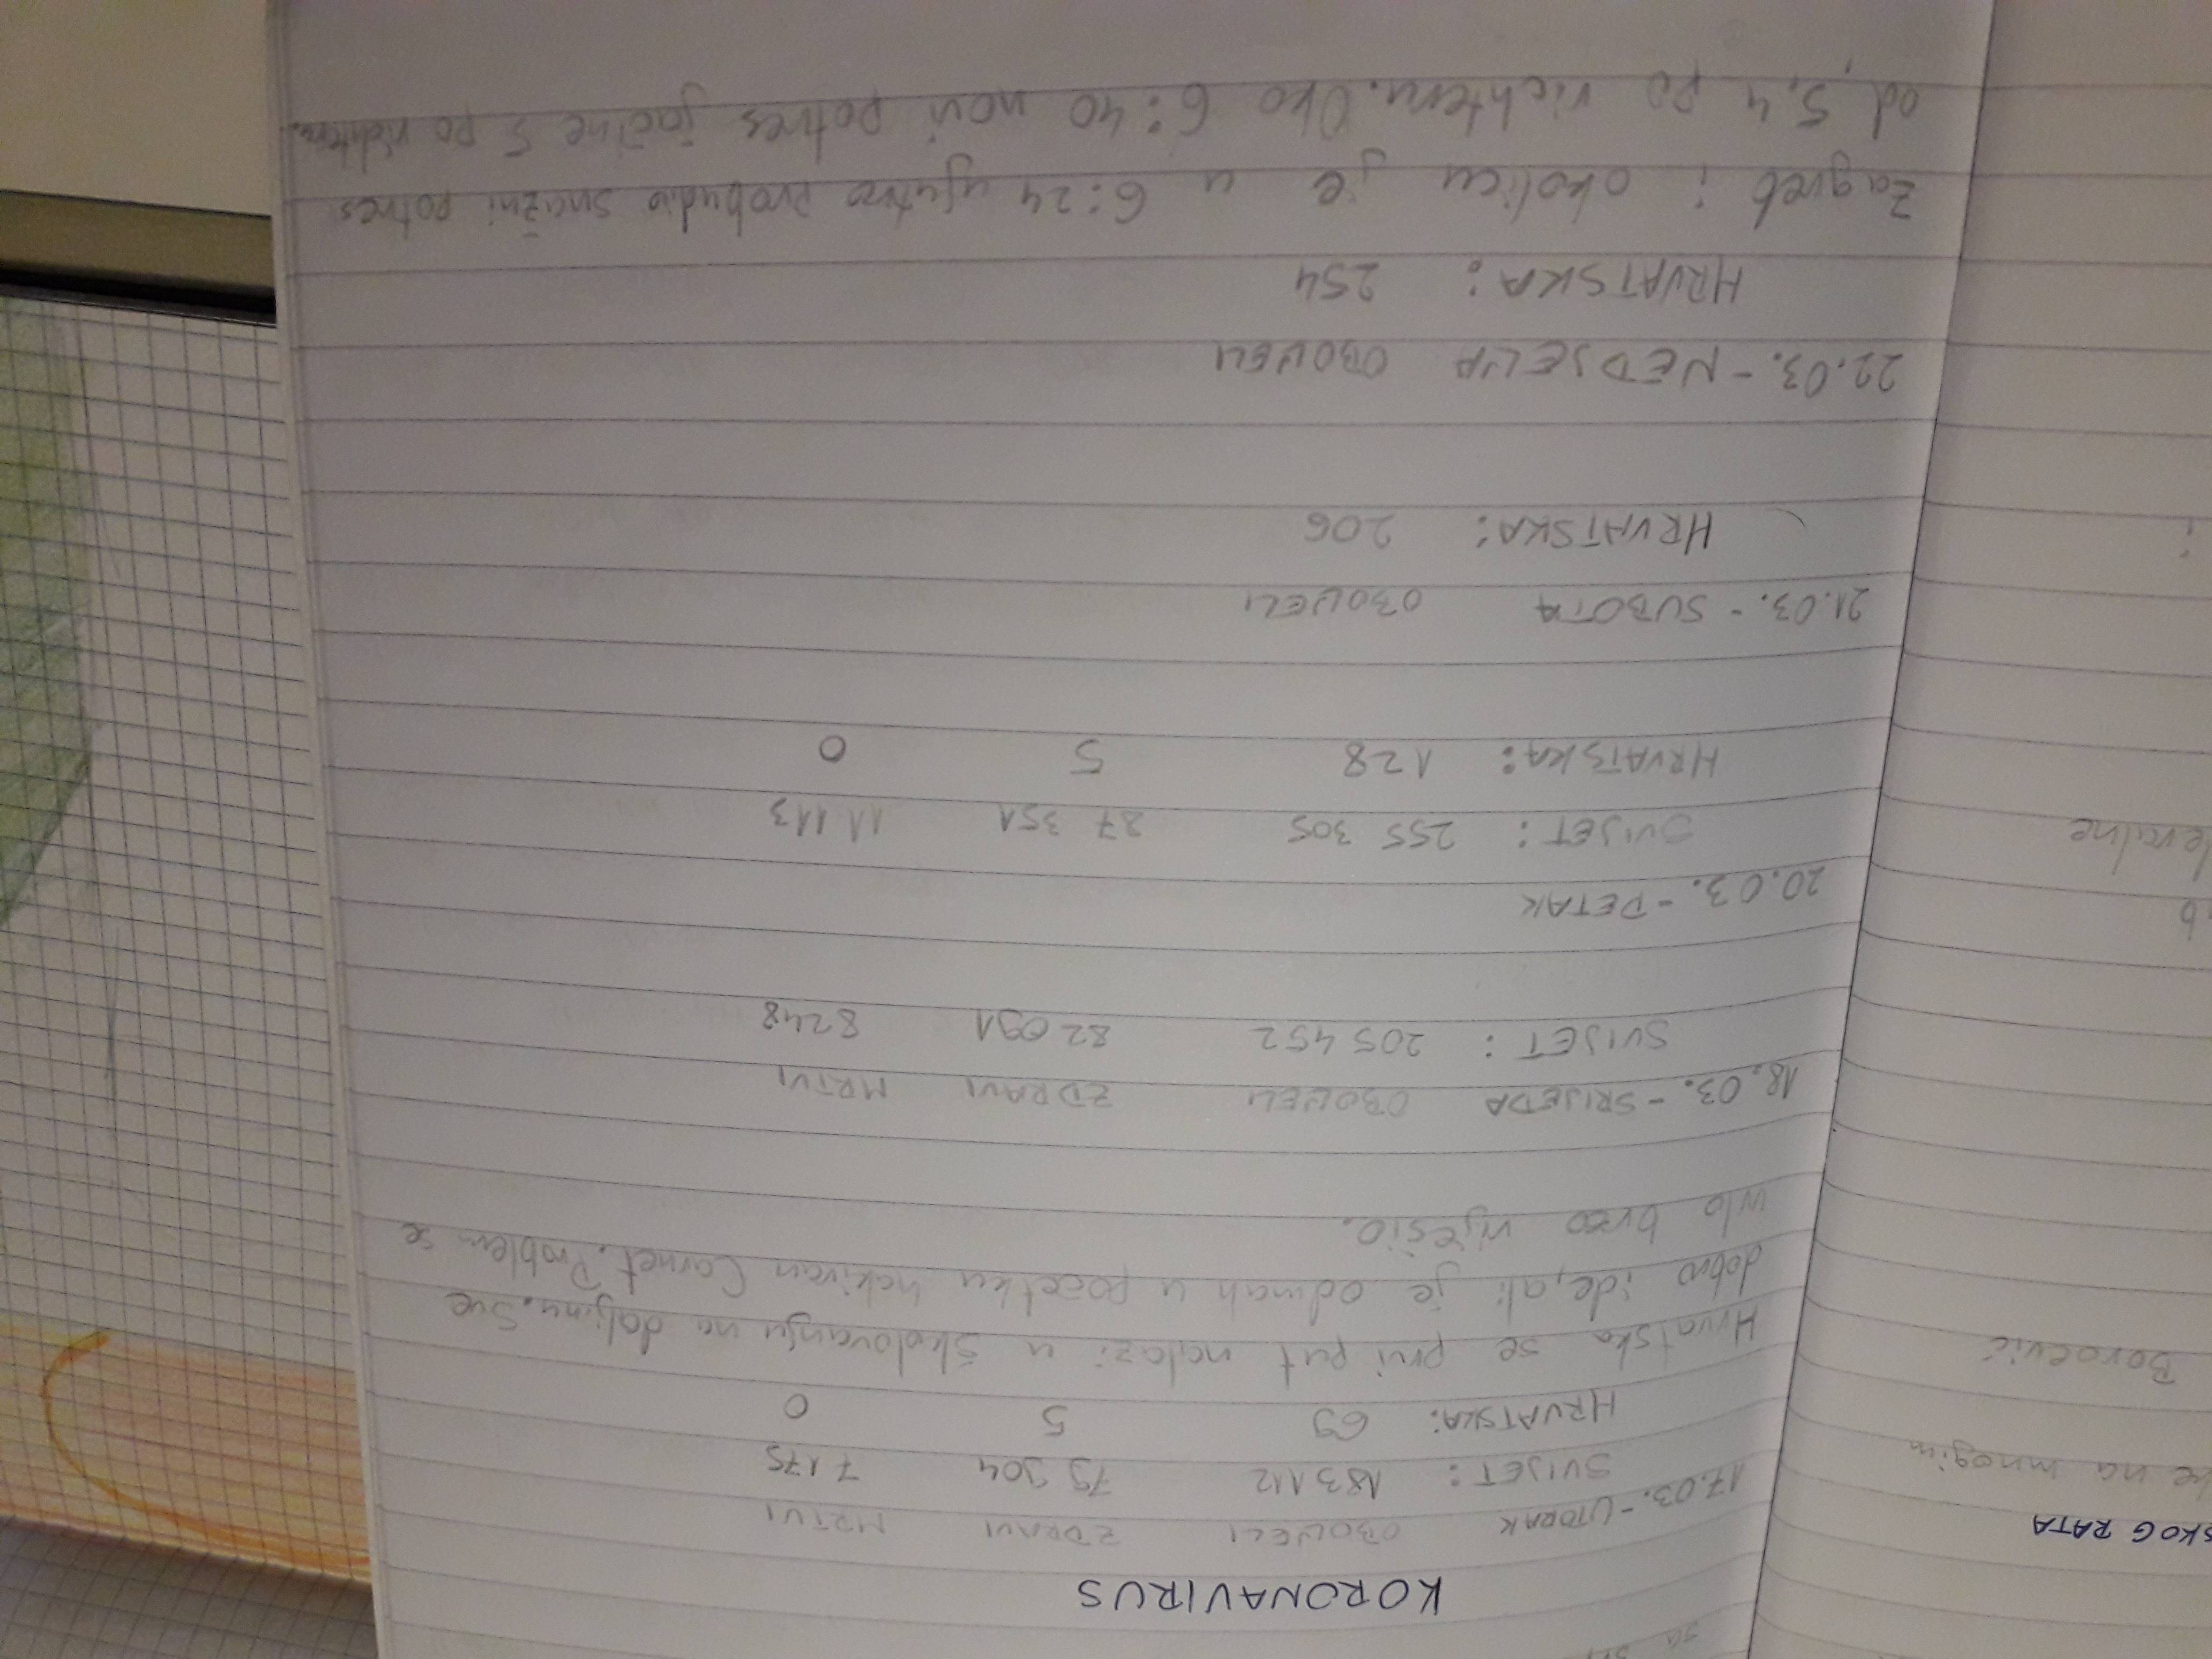 KORONAVIRUS
17.03. - UTORAK OBOLJELI ZDRAVI MRTVI
SVIJET: 183 112 79 904 7 175
HRVATSKA: 69 5 0
Hrvatska se prvi put nalazi u školovanju na daljinu. Sve
dobro ide, ali je odmah u početku hakiran Carnet. Problem se
vrlo brzo riješio.
18.03. - SRIJEDA OBOLJELI ZDRAVI MRTVI
SVIJET: 205 452 82 091 8 248
20.03. - PETAK
SVIJET: 255 305 87 351 11 113
HRVATSKA: 128 5 0
21.03. - SUBOTA OBOLJELI
HRVATSKA: 206
22.03. - NEDJELJA OBOLJELI
HRVATSKA: 254
Zagreb i okolicu je u 6:24 ujutro probudio snažni potres
od 5,4 po richteru. Oko 6:40 novi potres jačine 5 po richteru.
SKOG RATA
na mnogim
Boroević